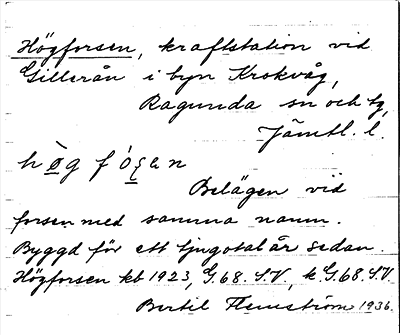 Högforsen, kraftstation vid
Gillerån i byn Krokvåg,
Ragunda sn och tg,
Jämtl. l.
Belägen vid
forsen med samma namn.
Byggd för ett tjugotal år sedan.
Högforsen kb 1923, G.68. S.V, k G.68. S.V.
Bertil Flemström 1936.